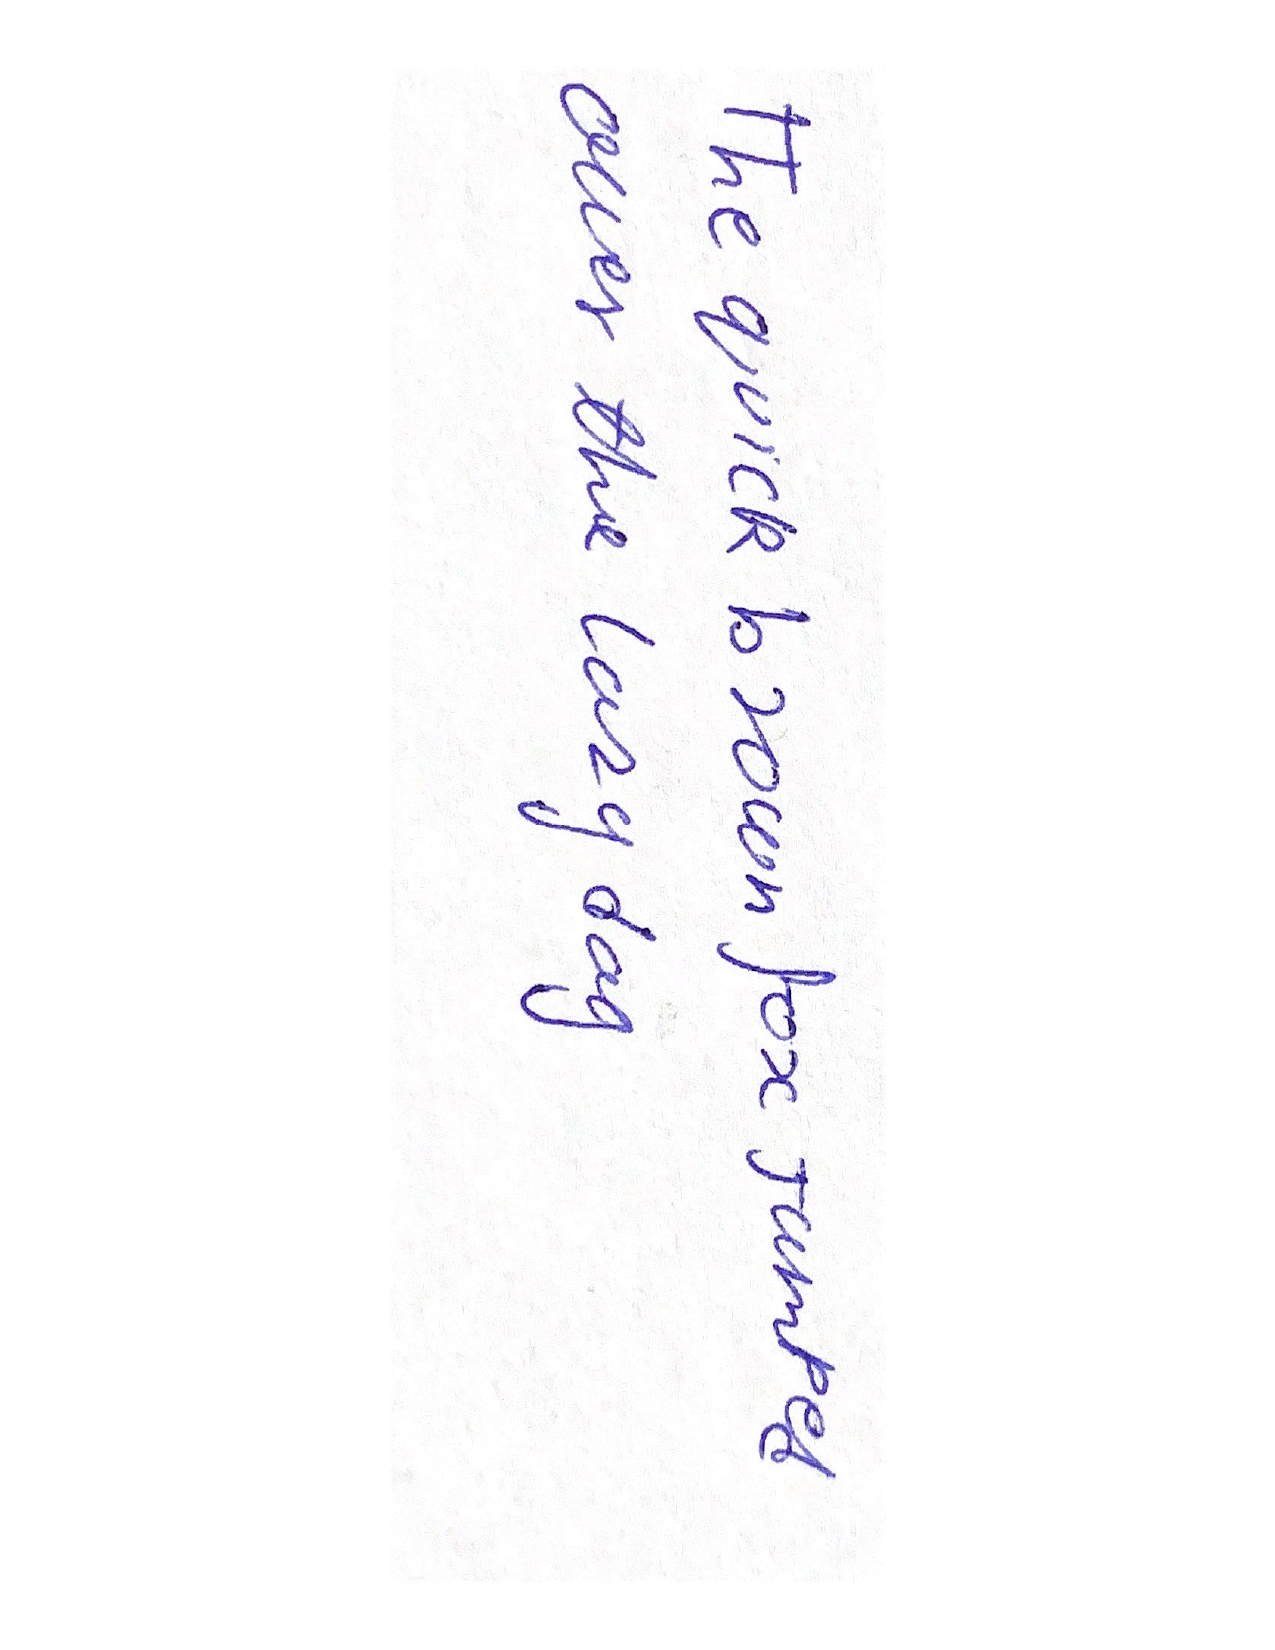 The quick brown fox Jumped
over the lazy dog